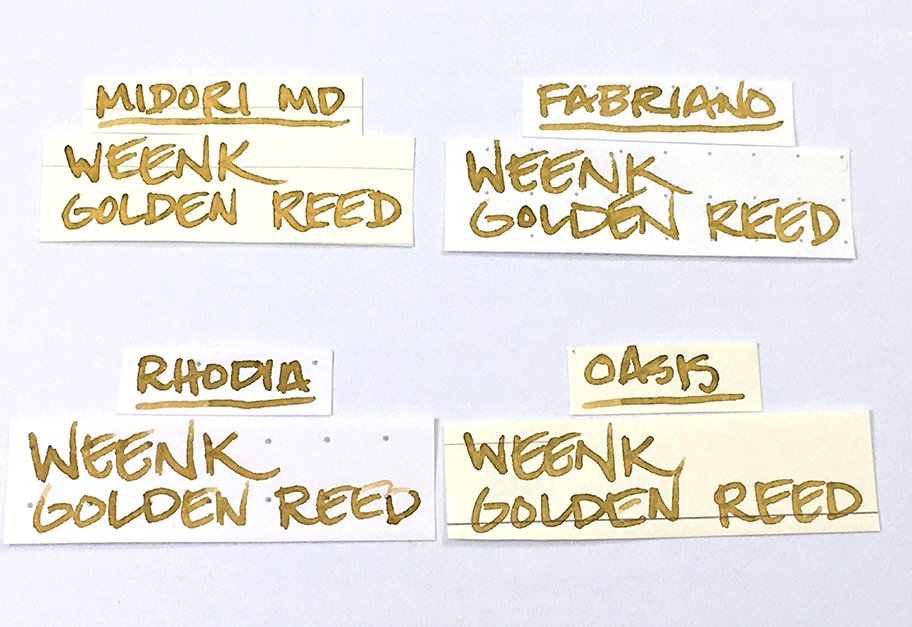 MIDORI MD
WEENK
GOLDEN REED
FABRIANO
WEENK
GOLDEN REED
RHODIA
WEENK
GOLDEN REED
OASIS
WEENK
GOLDEN REED